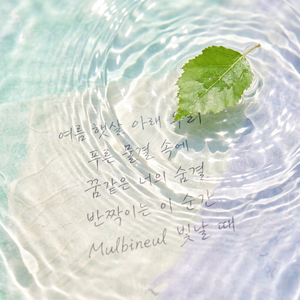 여름 햇살 아래 우리
푸른 물결 속에
꿈같은 너의 숨결
반짝이는 이 순간
Mulbineul 빛날 때